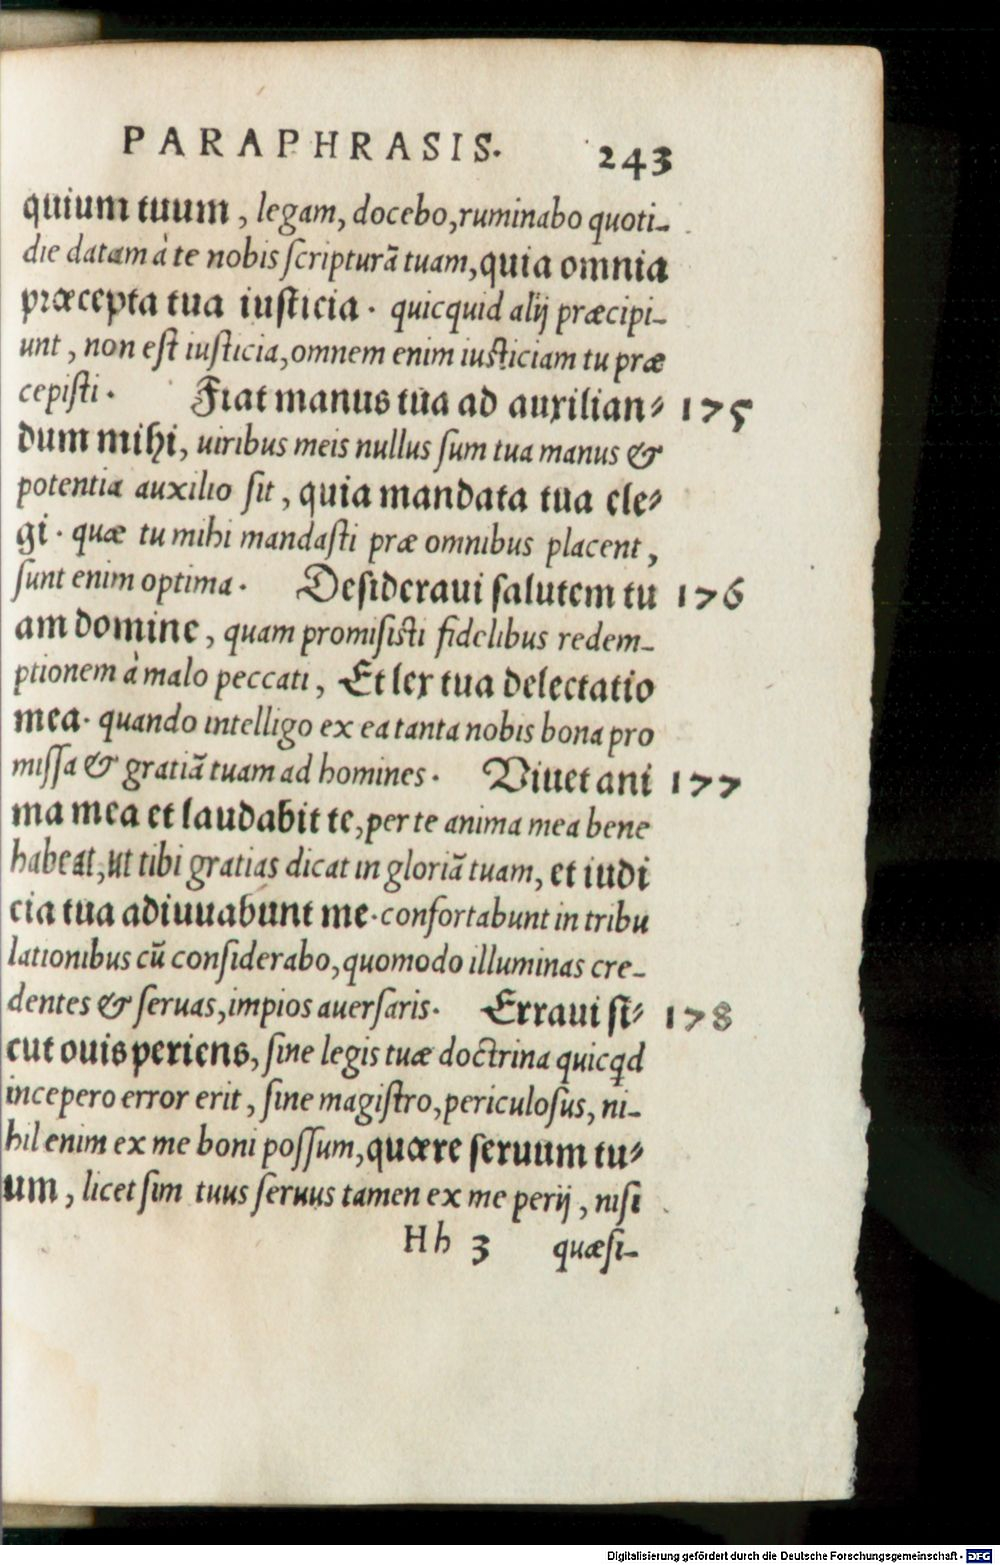 PARAPHRASIS. 243
quium tuum, legam, docebo, ruminabo quoti-
die datam à te nobis scripturã tuam, quia omnia
præcepta tua iusticia. quicquid alij præcipi-
unt, non est iusticia, omnem enim iusticiam tu præ
cepisti. Fiat manus tua ad auxilian- 175
dum mihi, uiribus meis nullus sum tua manus &
potentia auxilio sit, quia mandata tua ele-
gi. quæ tu mihi mandasti præ omnibus placent,
sunt enim optima. Desideraui salutem tu 176
am domine, quam promisisti fidelibus redem-
ptionem à malo peccati, Et lex tua delectatio
mea. quando intelligo ex ea tanta nobis bona pro
missa & gratiã tuam ad homines. Viuet ani 177
ma mea et laudabit te, per te anima mea bene
habeat, ut tibi gratias dicat in gloriã tuam, et iudi
cia tua adiuuabunt me. confortabunt in tribu
lationibus cũ considerabo, quomodo illuminas cre-
dentes & seruas, impios auersaris. Erraui si- 178
cut ouis periens, sine legis tuæ doctrina quicqd
incepero error erit, sine magistro, periculosus, ni-
hil enim ex me boni possum, quære seruum tu-
um, licet sim tuus seruus tamen ex me perij, nisi
Hh 3 quæsi-
Digitalisierung gefördert durch die Deutsche Forschungsgemeinschaft - DFG